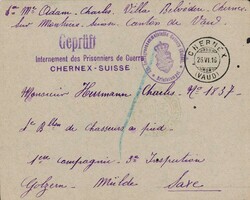 Mr Adam Charles, Villa Belvédère, Chernex
sur Montreux, Suisse canton de Vaud
Geprüft
Internement des Prisonniers de Guerre
CHERNEX - SUISSE
CHERNEX
26 VI 16
(VAUD)
Monsieur Hermann Charles, No 1857
1er Bllon de Chasseurs à pied
1ere Compagnie - 3e Inspection
Golzern Mülde Saxe